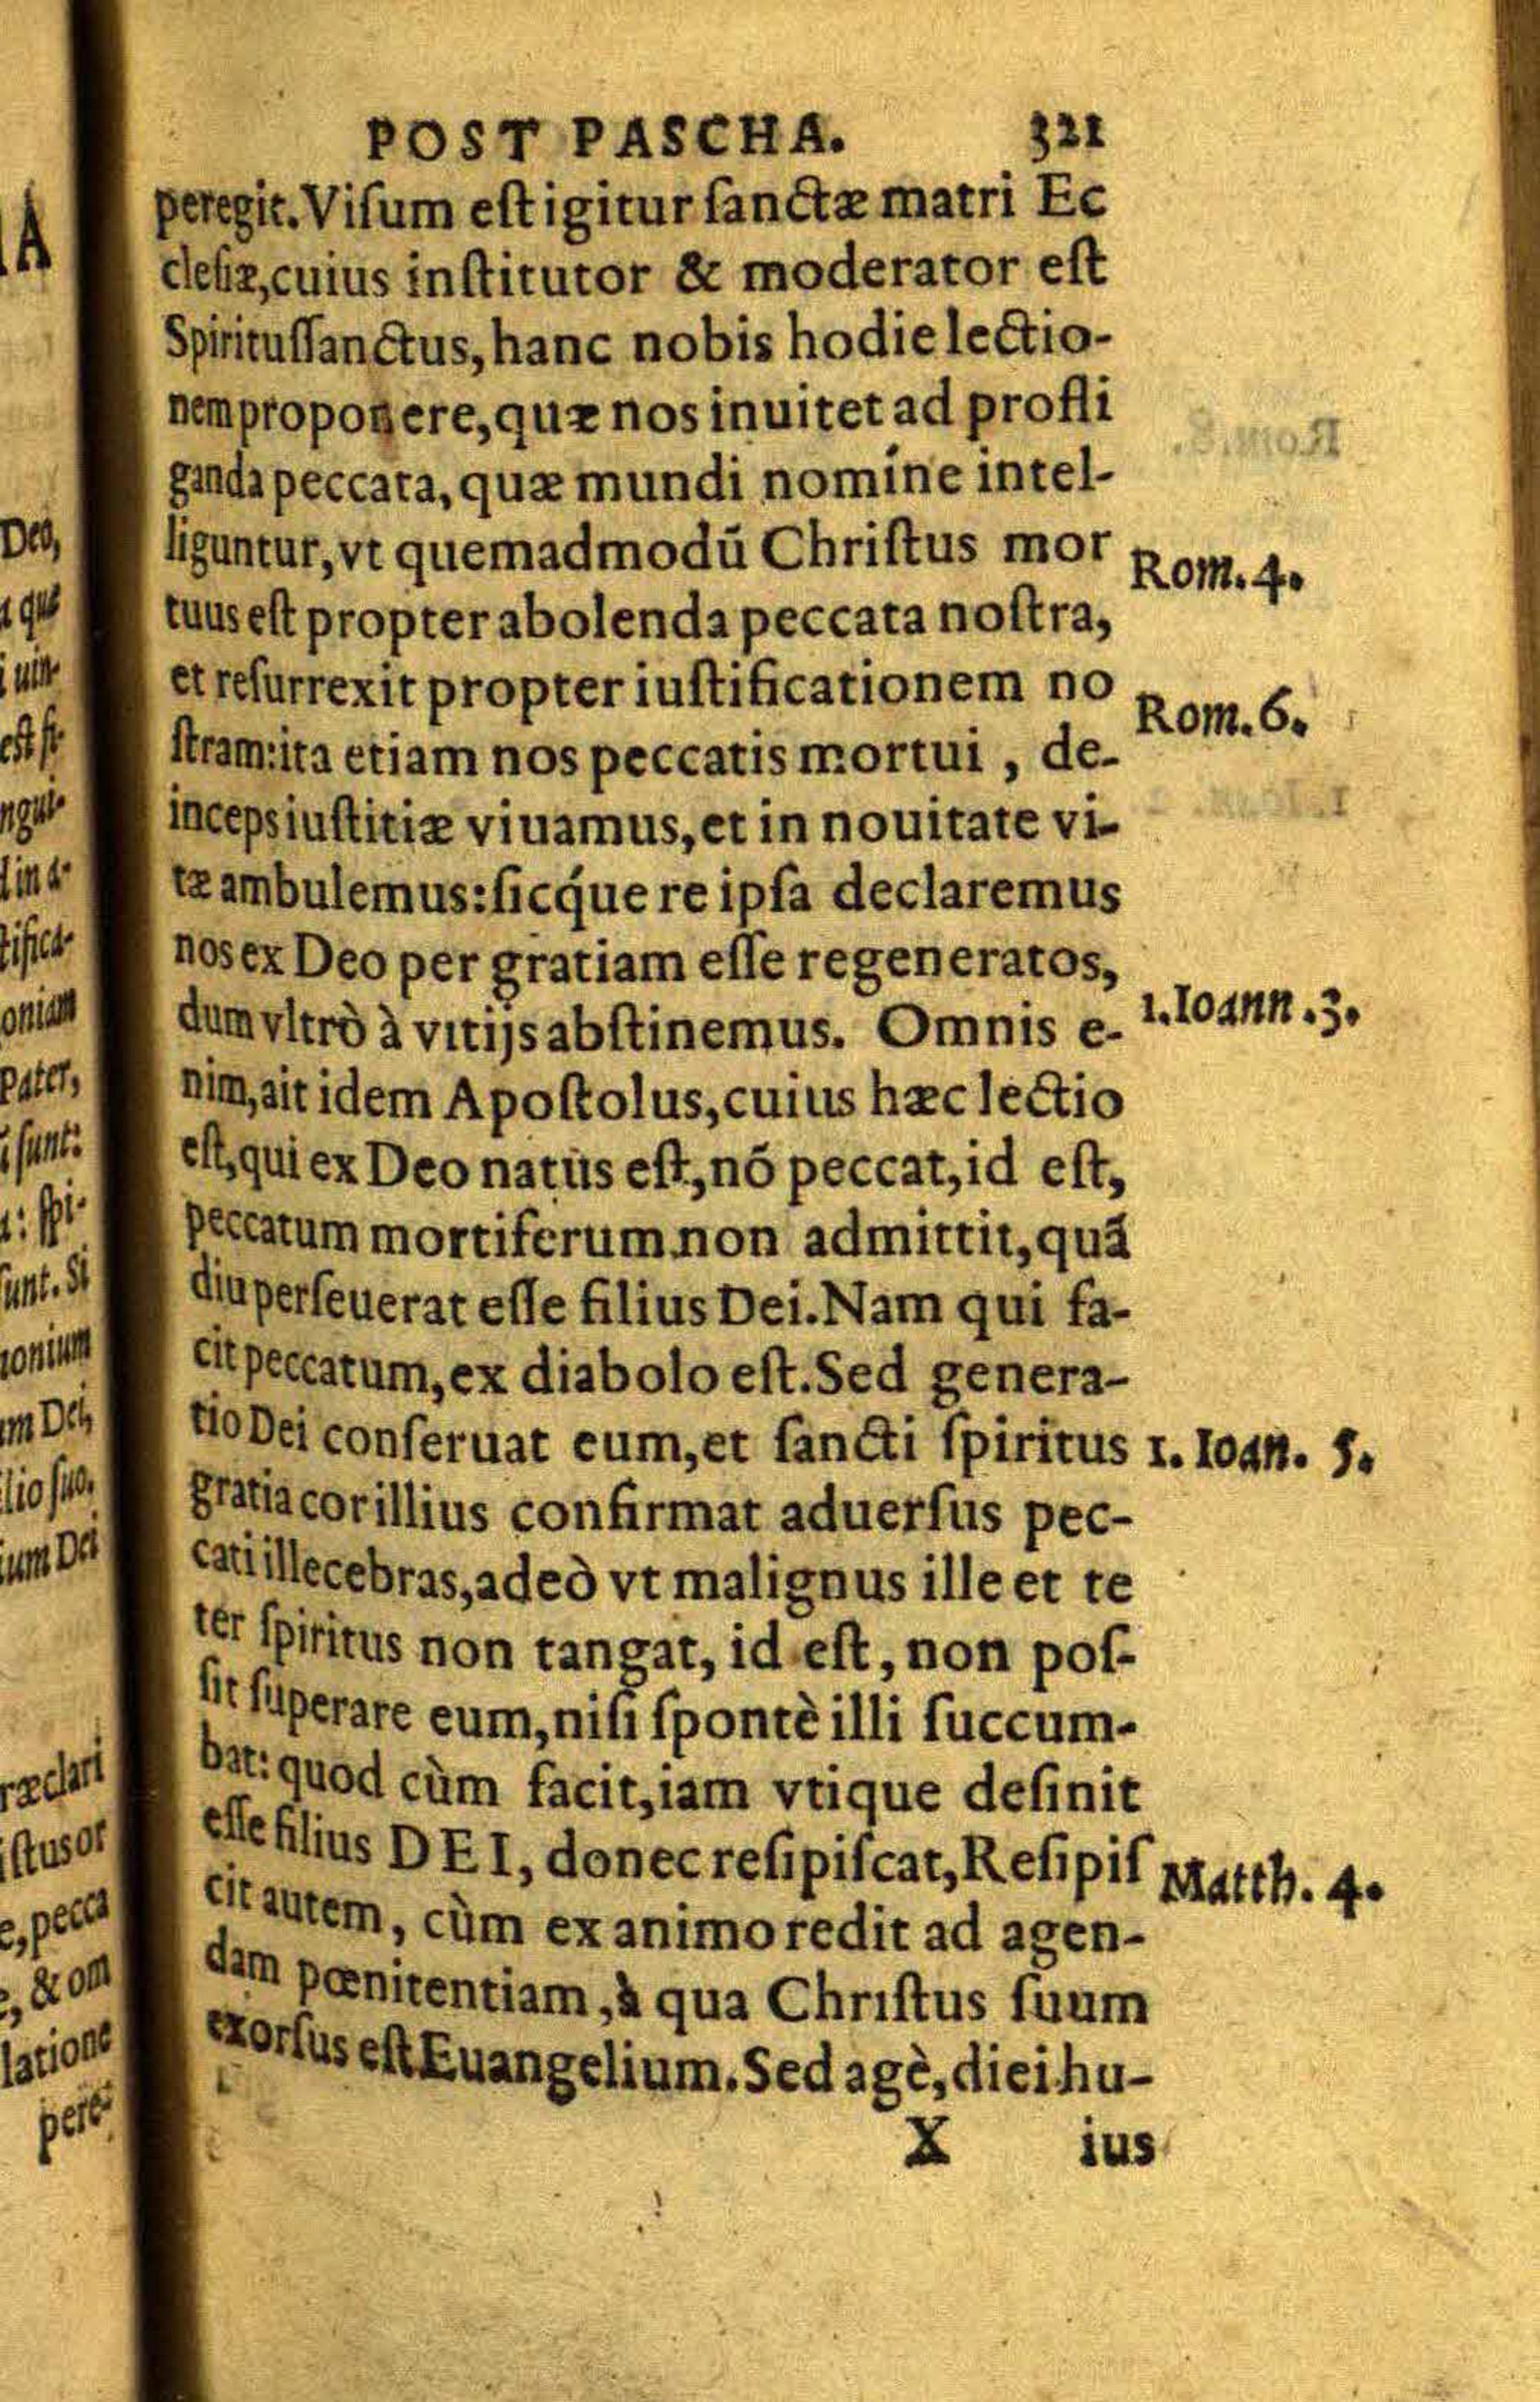 POST PASCHA. 321
peregit. Viſum eſt igitur ſanctæ matri Ec
cleſiæ, cuius inſtitutor & moderator eſt
Spirituſſanctus, hanc nobis hodie lectio-
nem proponere, quæ nos inuitet ad profli
ganda peccata, quæ mundi nomine intel-
liguntur, vt quemadmodū Chriſtus mor
Rom. 4.
tuus eſt propter abolenda peccata noſtra,
et reſurrexit propter iuſtificationem no
Rom. 6.
ſtram: ita etiam nos peccatis mortui, de-
inceps iuſtitiæ viuamus, et in nouitate vi-
tæ ambulemus: ſicq́ue re ipſa declaremus
nos ex Deo per gratiam eſſe regeneratos,
dum vltrò à vitijs abſtinemus. Omnis e-
1. Ioann. 3.
nim, ait idem Apoſtolus, cuius hæc lectio
eſt, qui ex Deo natus eſt, nō peccat, id eſt,
peccatum mortiferum non admittit, quā
diu perſeuerat eſſe filius Dei. Nam qui fa-
cit peccatum, ex diabolo eſt. Sed genera-
tio Dei conſeruat eum, et ſancti ſpiritus
1. Ioan. 5.
gratia cor illius confirmat aduerſus pec-
cati illecebras, adeò vt malignus ille et te
ter ſpiritus non tangat, id eſt, non poſ-
ſit ſuperare eum, niſi ſpontè illi ſuccum-
bat: quod cùm facit, iam vtique deſinit
eſſe filius DEI, donec reſipiſcat, Reſipiſ
Matth. 4.
cit autem, cùm ex animo redit ad agen-
dam pœnitentiam, à qua Chriſtus ſuum
exorſus eſt Euangelium. Sed agè, diei hu-
X ius